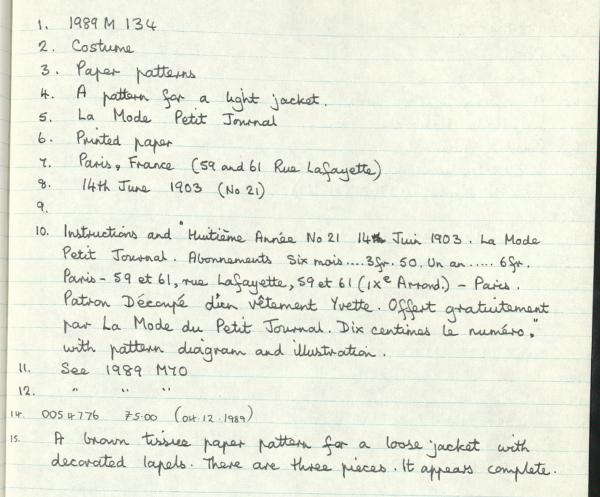 1. 1989 M 134
2. Costume
3. Paper patterns
4. A pattern for a light jacket.
5. La Mode Petit Journal
6. Printed paper
7. Paris, France (59 and 61 Rue Lafayette)
8. 14th June 1903 (No 21)
9.
10. Instructions and "Huitième Année No 21 14th Juin 1903. La Mode
Petit Journal. Abonnements Six mois....3fr. 50. Un an..... 6fr.
Paris - 59 et 61, rue Lafayette, 59 et 61 (IXe Arrond.) - Paris.
Patron Découpé d'un vêtement Yvette. Offert gratuitement
par La Mode du Petit Journal. Dix centimes le numéro."
with pattern diagram and illustration.
11. See 1989 M70
12. " " "
14. 0054776 75.00 (04.12.1989)
15. A brown tissue paper pattern for a loose jacket with
decorated lapels. There are three pieces. It appears complete.